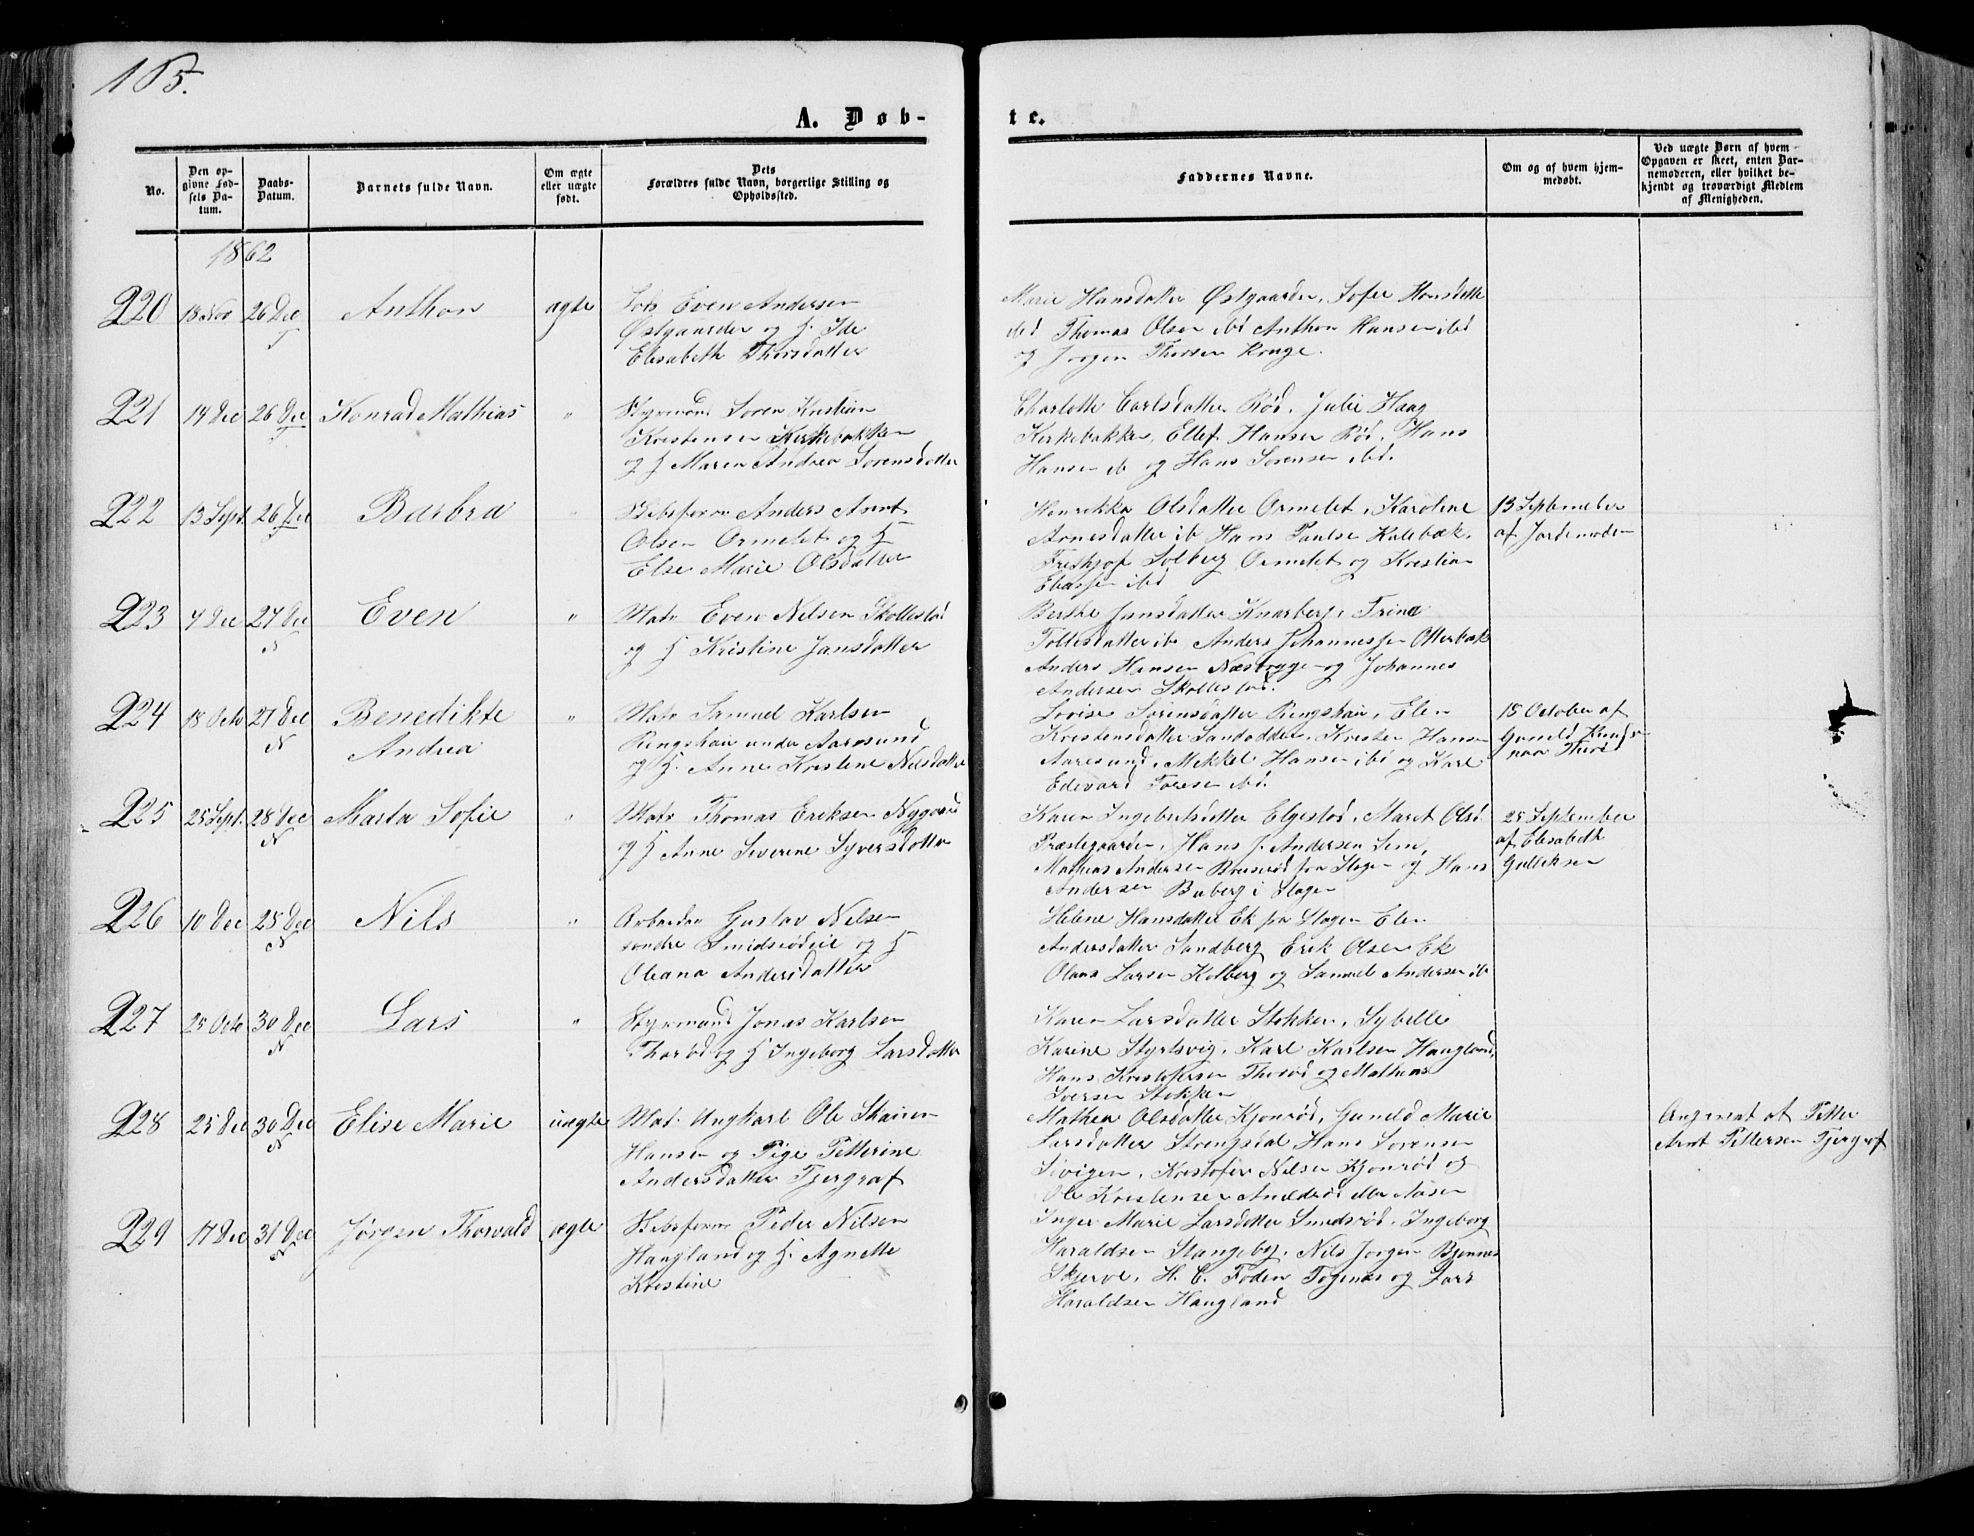 105.
A. Døb-
te.
No.
Den op-
givne Fød-
sels Da-
tum.
Daabs-
Datum.
Barnets fulde Navn.
Om ægte
eller uægte
født.
Dets
Forældres fulde Navn, borgerlige Stilling og
Opholdssted.
Faddernes Navne.
Om og af hvem hjem-
medøbt.
Ved uægte Børn af hvem
Opgaven er skeet, enten Bar-
nemoderen, eller hvilket be-
kjendt og troværdigt Medlem
af Menigheden.
1862
220 18 Nov 26 Dec Anthon ægte Lods Even Andersen
Østgaarden og H. Ide
Elisabeth Thorsdatter
Marie Hansdatter Østgaarden, Sofie Hansdatter
ibd Thomas Olsen ibd Anthon Hansen ibd
og Jørgen Thorsen
221 14 Dec 26 Dec Konrad Mathias " Styrmand Soren Kristian
Kristensen Kirkebakken
og H Maren Andrea Sorensdatter
Charlotte Carlsdatter Rød, Julie Haag
Kirkebakken, Ellef Hansen Rød, Hans
Hansen ib og Hans Sorensen ibd.
222 13 Sept. 26 Dec Barbra " Skibsfører Anders Arnt
Olsen Ormelet og H
Else Marie Olsdatter
Henrikka Olsdatter Ormelet, Karoline
Arnesdatter ib Hans Paulse Kalebæk,
Frithjof Solberg Ormelet og Kristian
ibd
13 September
af Jordemoder
223 4 Dec 27 Dec N Even " Matr Even Nilsen Skollesbød
og H Kristine Jansdatter
Berthe Jansdatter Knarberg, Trine
Tollesdatter ib Anders Johannessen Otterbæk
Anders Hansen Næsbrygge og Johannes
Andersen
224 18 Octo 27 Dec N Benedikte
Andrea " Matr Samuel Karlsen
Ringshaug under Aarøsund
og H. Anne Kristine Nilsdatter
Lovise Sorensdatter Ringshaug, Elen
Kristensdatter Sandodden, Kristen Hansen
Aarøsund, Mikkel Hansen ibd og Karl
Edevard Toresen ibd.
18 October af
Gunild
225 25 Sept. 28 Dec N Marta Sofie " Matr Thomas Eriksen Nygaard
og H Anne Severine Syversdatter
Karen Ingebretsdatter Elgestad, Maret Olsd
Præstegaarden, Hans J. Andersen Sem,
Mathias Andersen fra Slagen og Hans
Andersen Buberg i Slagen
25 September
af Elisabeth
Gulliksen
226 10 Dec 28 Dec N Nils " Arbeider Gustav Nilsen
sondre Smidsrødeie og H
Oleana Andersdatter
Helene Hansdatter Ek fra Slagen Elen
Andersdatter Sandberg Erik Olsen Ek
Olaus Larsen Kolberg og Samuel Andersen ib
227 25 Octo 30 Dec N Lars " Styrmand Jonas Karlsen
Thorød og H Ingeborg Larsdatter
Karen Larsdatter Stokken, Sybelle
Karine Styrtsvig, Karl Karlsen Haugland,
Hans Kristofersen Thorød og Mathias
Iversen Stokken
228 25 Dec 30 Dec N Elise Marie uægte Mat. Ungkarl Ole
Hansen og Pige Petterine
Andersdatter Tjergraf
Mathea Olsdatter Kjonrød, Gunild Marie
Larsdatter Strengsdal Hans Sorensen
Kristofer Nilsen Kjonrød og
Ole Kristensen
Angivet af Petter
Arnt Pettersen Tjergraf
229 17 Dec 31 Dec N Jørgen Thorvald ægte Skibsfører Peder Nilsen
Haugland og H. Agnette
Kristine
Inger Marie Larsdatter Smidsrød, Ingeborg
Haraldsen Stangeby, Nils Jorgen Bjønnes
Skjerve, H. C. Foden Togenæs og Lars
Haraldsen Haugland